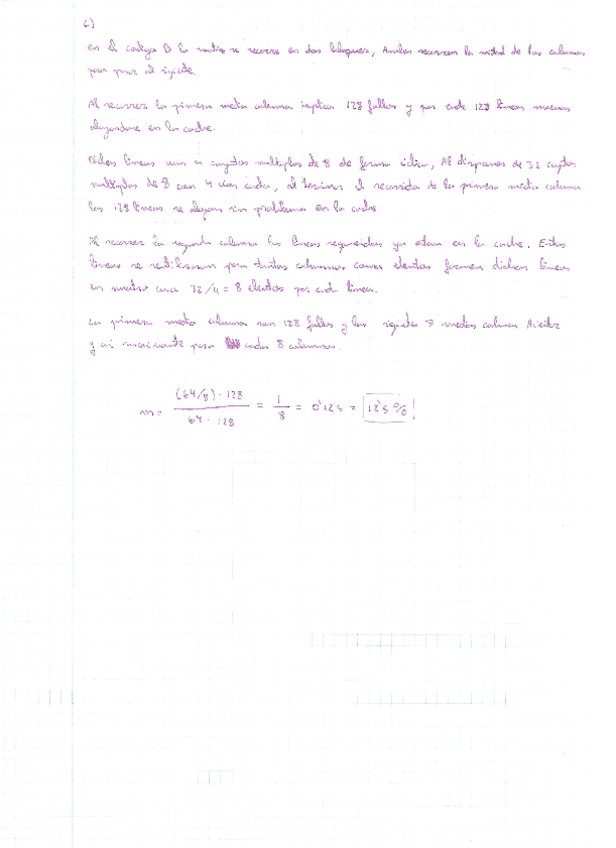 c)
en el codigo B la matriz se recorre en dos bloques, Ambos recorren la mitad de las columnas
para pasar al siguiente.
Al recorrer la primera media columna implica 128 fallos y por ende 128 lineas nuevas
alojandose en la cache.
Dichas lineas van a conjuntos multiplos de 8 de forma ciclica, Al disponer de 32 conjuntos
multiplos de 8 con 4 vias cada, al terminar el recorrido de la primera media columna
las 128 lineas se alojan sin problema en la cache
Al recorrer la segunda columna las lineas requeridas ya estan en la cache. Estas
lineas se reutilizaran para tantas columnas como elementos formen dichas lineas
en nuestro caso 32/4 = 8 elementos por cada linea.
La primera media columna son 128 fallos y las siguientes 7 medias columnas Aciertos
y asi sucesivamente para cada 8 columnas.
m = (64/8) · 128 / 64 · 128 = 1/8 = 0'125 = 12'5 %!